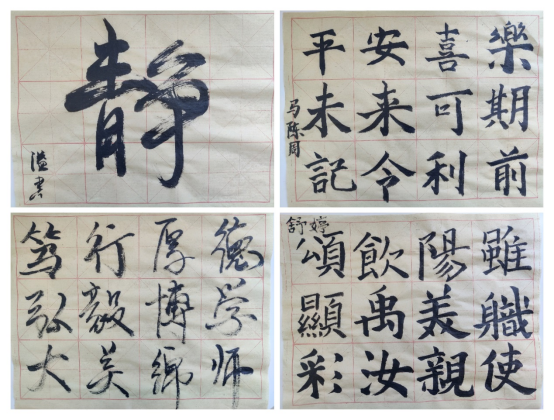 静
溢書
平安喜樂
未来可期
記令利前
马陈周
笃行厚德
弘毅博学
大美鄉师
舒婷
頌飲陽雖
顯禹美職
彩汝親使